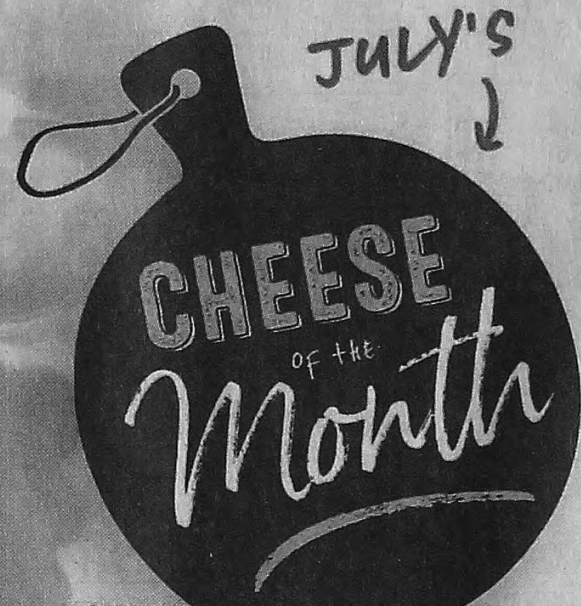 JULY'S
CHEESE
OF the
Month